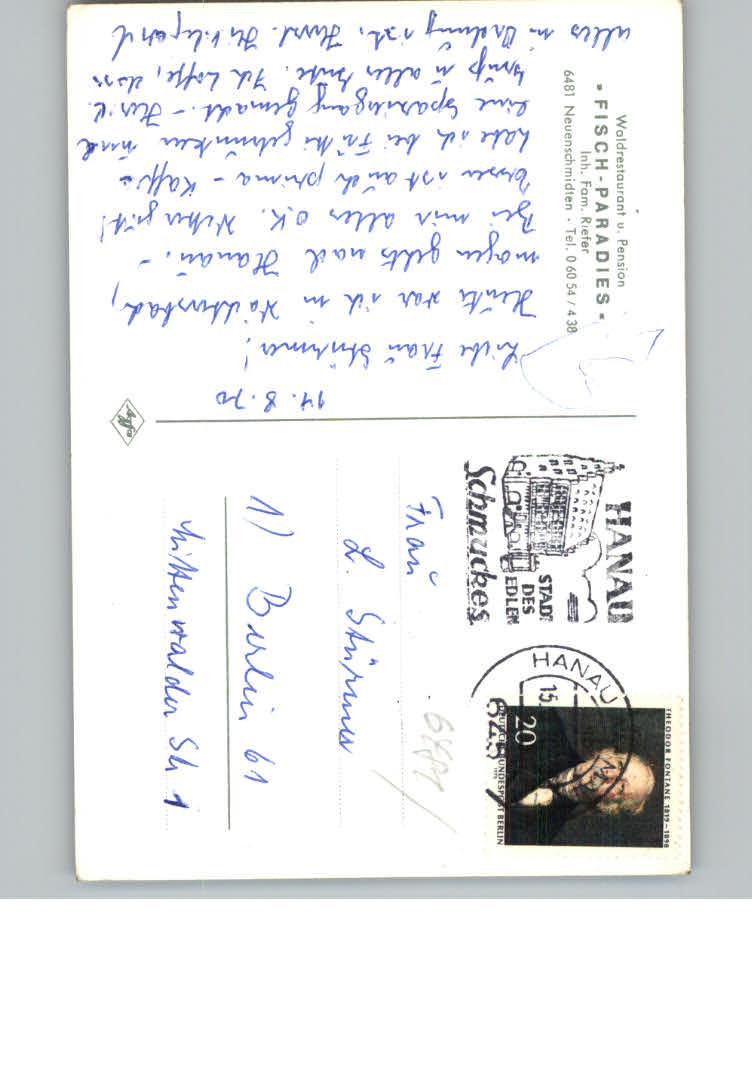 Waldrestaurant u. Pension
» FISCH-PARADIES «
Inh. Fam. Riefer
6481 Neuenschmidten · Tel. 0 60 54 / 4 38
14. 8. 70
Liebe Frau Stürmer!
Heute war ich in Wächtersbad,
morgen gehts nach Hanau. –
Bei mir alles O.K. Wetter gut!
Essen ist auch prima – Kaffee
habe ich bei getrunken und
eine Spaziergang gemacht. – Herzl.
Grüße u alles Gute. Ich hoffe, dass
alles in Ordnung ist. Herzl.
Agfa
HANAU
STADT
DES
EDLEN
Schmuckes
HANAU
15.
THEODOR FONTANE 1819–1898
20
DEUTSCHE BUNDESPOST BERLIN
Frau
L. Stürmer
1) Berlin 61
Mittenwalder Str 1